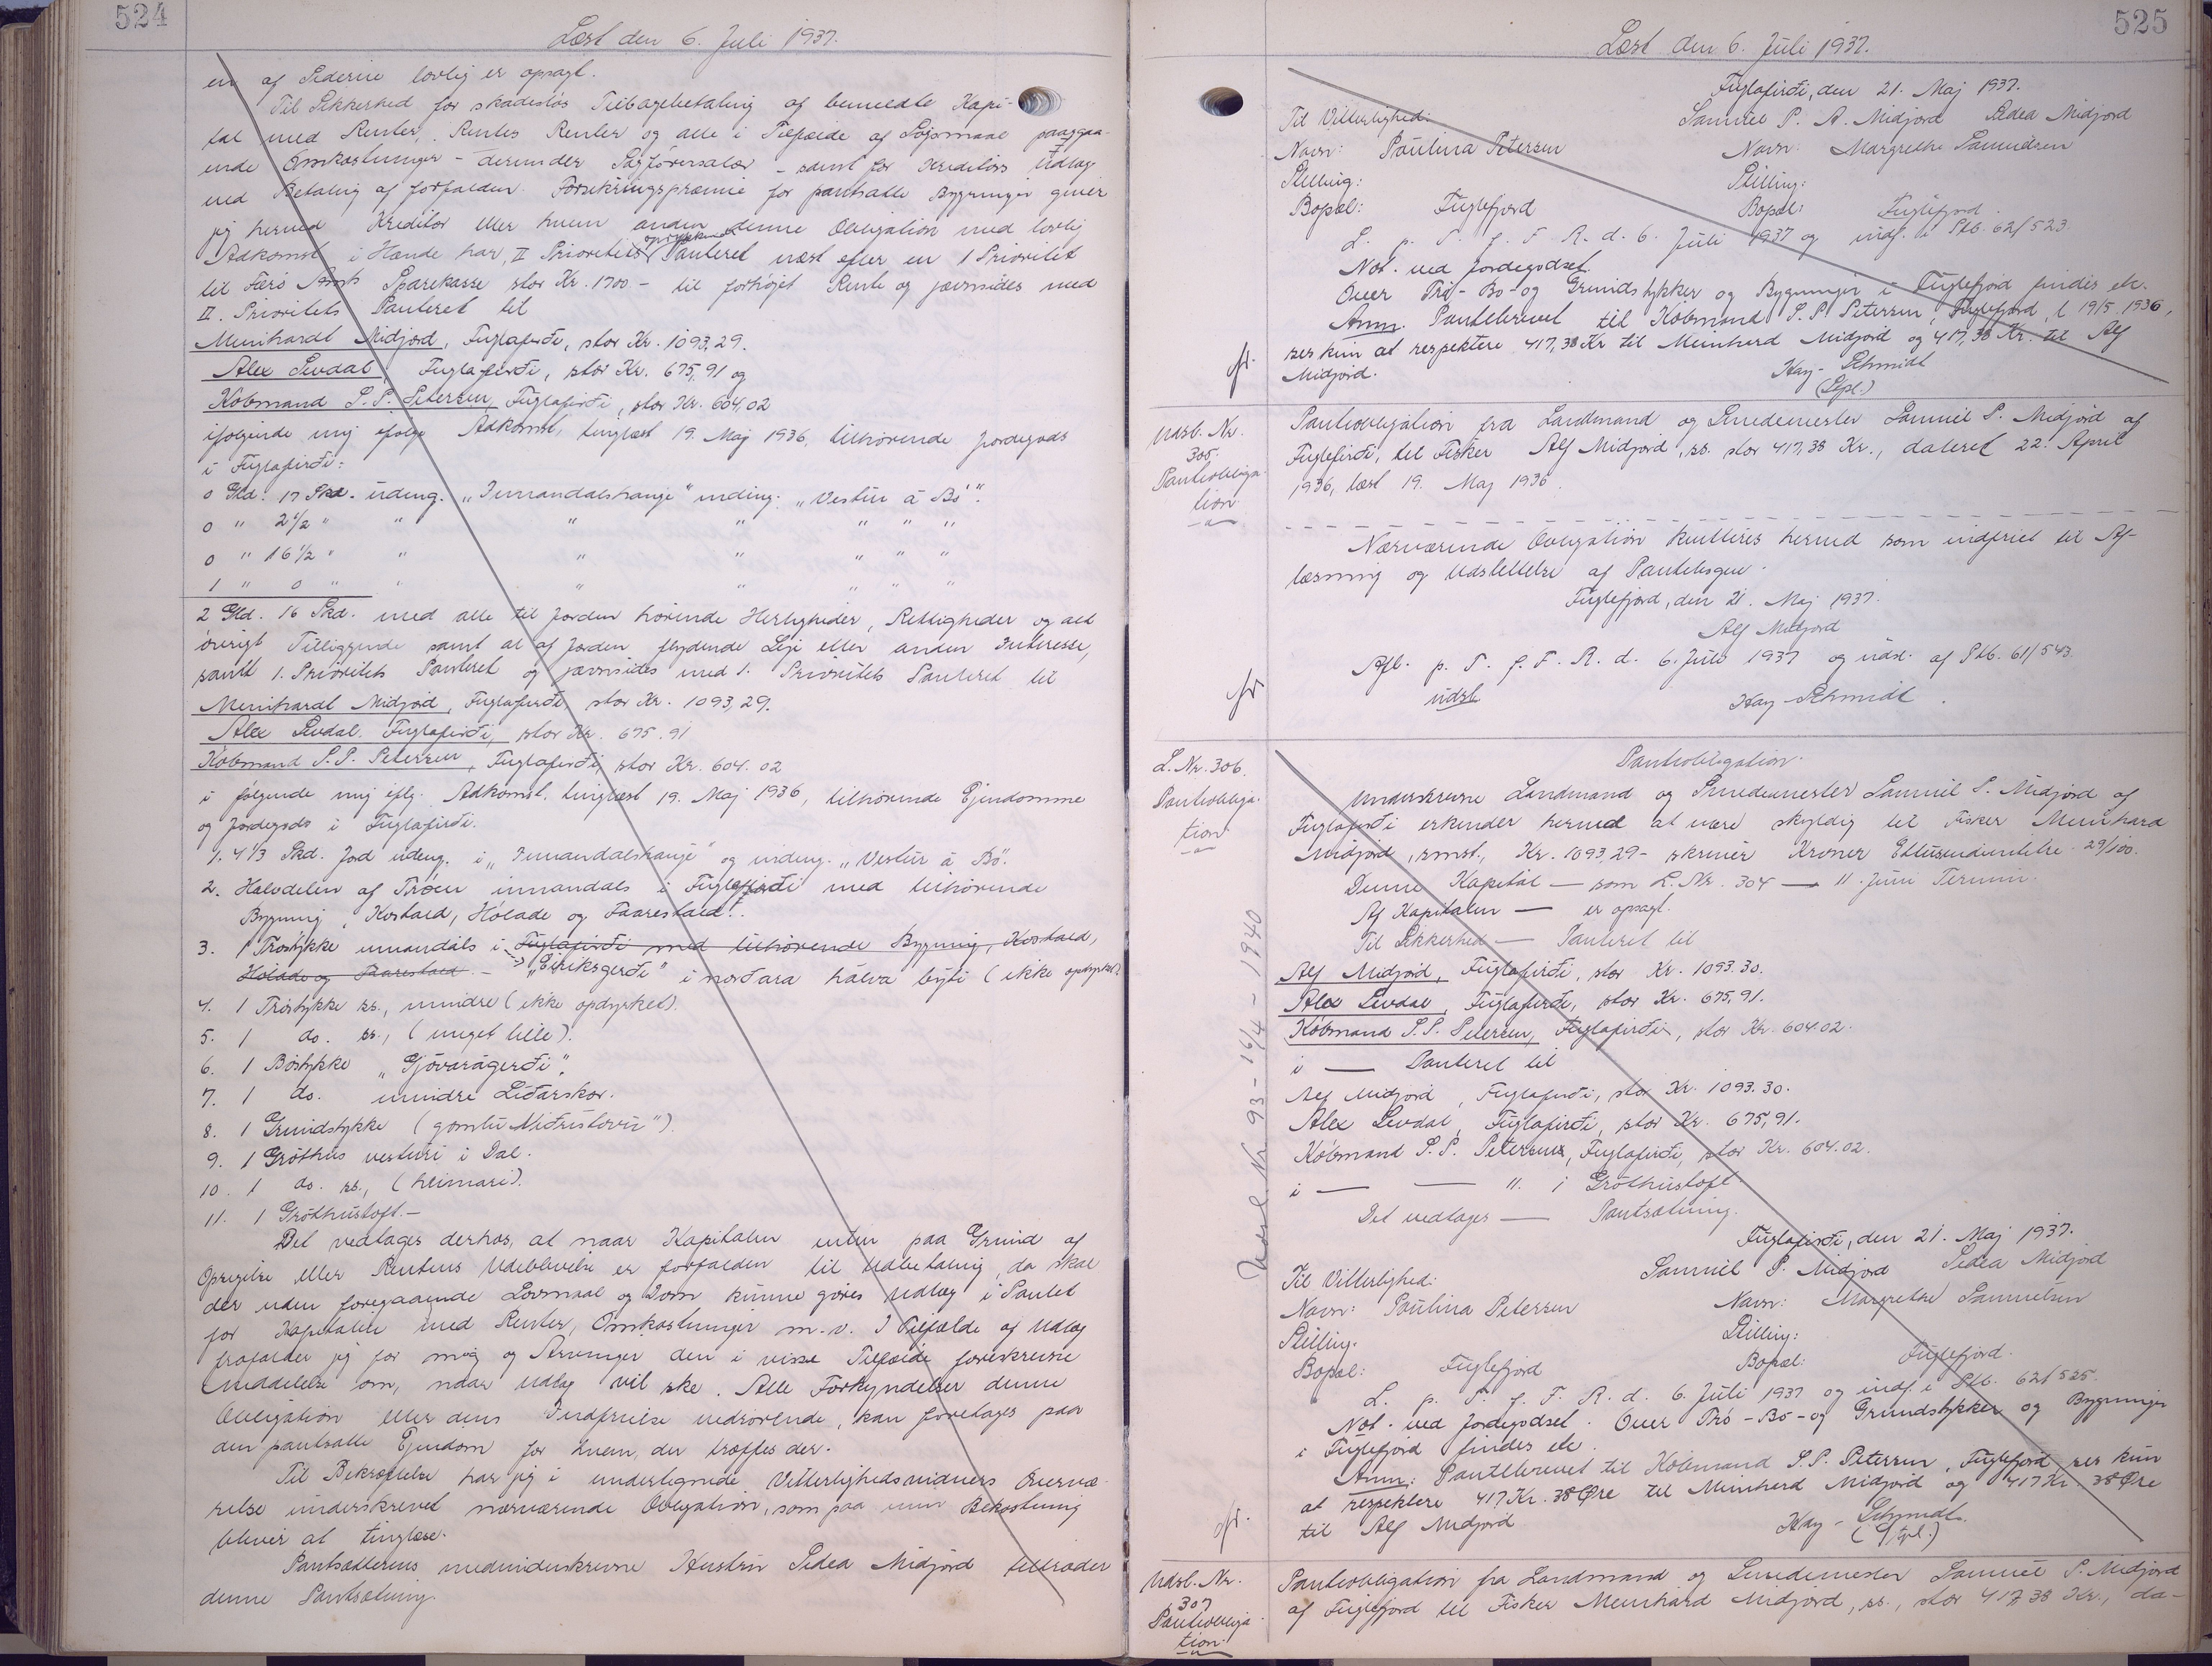 524
Læst den 6. Juli 1937.
en af Siderne lovlig er opsagt.
Til Sikkerhed for skadesløs Tilbagebetaling af bemeldte Kapi-
tal med Renter, Rentes Renter og alle i Tilfælde af Søgsmaal paagaa-
ende Omkostninger - derunder Sagførersalær - samt for Kreditors Udlæg
ved Betaling af forfalden Forsikringspræmie for pantsatte Bygninger giver
jeg herved Kreditor eller hvem anden denne Obligation med lovlig
Adkomst i Hænde har, II Prioritets oprykkende Panteret næst efter en 1 Prioritet
til Færø Amts Sparekasse stor Kr. 1700.- til forhøjet Rente og jævnsides med
II. Prioritets Panteret til
Meinhardt Midjord, Fuglafirði, stor Kr. 1093,29.
Alex Levdal, Fuglafirði, stor Kr. 675,91 og
Købmand S.P. Petersen, Fuglafirði, stor Kr. 604,02
i følgende mig ifølge Adkomst, tinglæst 19. Maj 1936, tilhørende Jordegods
i Fuglafirði:
0 Gld. 17 Skd. udeng. „Innandalshauge" indeng. „Vestur á Bø".
0 " 2 1/2 " " " " " " "
0 " 16 1/2 " " " " " " "
1 " 0 " " " " " "
2 Gld. 16 Skd. med alle til Jorden hørende Herligheder, Rettigheder og alt
øvrigt Tilliggende samt al af Jorden flydende Leje eller anden Interesse,
samt 1. Prioritets Panteret og jævnsides med 1. Prioritets Panteret til
Meinhardt Midjord, Fuglafirði, stor Kr. 1093,29.
Alex Levdal, Fuglafirði, stor Kr. 675.91
Købmand S.P. Petersen, Fuglafirði, stor Kr. 604.02
i følgende mig iflg. Adkomst, tinglæst 19. Maj 1936, tilhørende Ejendomme
og Jordegods i Fuglafirði.
1. 4 1/3 Skd. Jord udeng. i „Innandalshauge" og indeng. „Vestur á Bø".
2. Halvdelen af Trøen innandals i Fuglafirði med tilhørende
Bygning, Kostald, Hølade og Faarestald.
3. 1 Trøstykke innandals i Fuglafirði med tilhørende Bygning, Kostald,
Hølade og Faarestald - „Eiriksgerði" i norðara hálva býti (ikke opdyrket)
4. 1 Trøstykke ss., mindre (ikke opdyrket).
5. 1 do. ss., (meget lille).
6. 1 Bøstykke „Gjóvarágerði".
7. 1 do. undir Líðarskor.
8. 1 Grundstykke (gomlu Niðristovu").
9. 1 Gróthús vesturi í Dal.
10. 1 do. ss., (heimari).
11. 1 Gróthústoft.-
Det vedtages derhos, at naar Kapitalen enten paa Grund af
Opsigelse eller Rentens Udeblivelse er forfalden til Udbetaling, da skal
der uden foregaaende Lovmaal og Dom kunne gøres Udlæg i Pantet
for Kapitalen med Renter, Omkostninger m.v. I Tilfælde af Udlæg
frafalder jeg for mig og Arvinger den i visse Tilfælde foreskrevne
Meddelelse om, naar Udlæg vil ske. Alle Forkyndelser denne
Obligation eller dens Indfrielse vedrørende, kan foretages paa
den pantsatte Ejendom for hvem, der træffes der.
Til Bekræftelse har jeg i undertegnede Vitterlighedsvidners Overvæ-
relse underskrevet nærværende Obligation, som paa min Bekostning
bliver at tinglæse.
Pantsætterens medunderskrevne Hustru Sidea Midjord tiltræder
denne Pantsætning.
525
Læst den 6. Juli 1937.
Fuglafirði, den 21. Maj 1937.
Til Vitterlighed: Samuel P. A. Midjord Sidea Midjord
Navn: Paulina Petersen Navn: Margrethe Samuelsen
Stilling: Stilling:
Bopæl: Fuglefjord Bopæl: Fuglefjord.
L. p. T. f. F. R. d. 6. Juli 1937 og indf. i Ptb. 62/523.
Not. ved Jordegodset.
Over Trø- Bø- og Grundstykker og Bygninger i Fuglefjord findes etc.
Anm. Pantebrevet til Købmand S.P. Petersen, Fuglefjord, l. 19/5 1936,
ses kun at respektere 417,38 Kr til Meinhard Midjord og 417,38 Kr. til Alf
Midjord.
Kay-Schmidt
Udsl. Nr.
305.
Pantobliga-
tion
Pantobligation fra Landmand og Smedemester Samuel P. Midjord af
Fuglefirði, til Fisker Alf Midjord, ss. stor 417,38 Kr., dateret 22. April
1936, læst 19. Maj 1936.
Nærværende Obligation kvitteres herved som indfriet til Af-
læsning og Udslettelse af Pantebogen.
Fuglefjord, den 21. Maj 1937.
Alf Midjord
Afl. p. T. f. F. R. d. 6. Juli 1937 og udsl. af Ptb. 61/543
udsl.
Kay-Schmidt
L. Nr. 306.
Pantobliga-
tion
Udsl. Nr. 93 - 16/4 - 1940
Pantobligation.
Underskrevne Landmand og Smedemester Samuel P. Midjord af
Fuglafirði erkender herved at være skyldig til Fisker Meinhard
Midjord, smst., Kr. 1093,29 - skriver Kroner Ettusendnitretre 29/100.
Denne Kapital — som L. Nr. 304 — 11. Juni Termin.
Af Kapitalen — er opsagt.
Til Sikkerhed — Panteret til
Alf Midjord, Fuglafirði, stor Kr. 1093.30.
Alex Levdal, Fuglafirði, stor Kr. 675,91.
Købmand S.P. Petersen, Fuglafirði, stor Kr. 604.02.
i — Panteret til
Alf Midjord, Fuglafirði, stor Kr. 1093.30.
Alex Levdal, Fuglafirði, stor Kr. 675,91.
Købmand S.P. Petersen, Fuglafirði, stor Kr. 604.02.
i — — 11. 1 Gróthústoft.
Det vedtages — Pantsætning.
Fuglafirði, den 21. Maj 1937.
Til Vitterlighed: Samuel P. Midjord Sidea Midjord
Navn: Paulina Petersen Navn: Margrethe Samuelsen
Stilling. Stilling:
Bopæl: Fuglefjord Bopæl: Fuglefjord.
L. p. T. f. F. R. d. 6. Juli 1937 og indf. i Ptb. 62/525.
Not. ved Jordegodset. Over Trø-Bø- og Grundstykker og Bygninger
i Fuglefjord findes etc.
Anm: Pantebrevet til Købmand S.P. Petersen, Fuglefjord ses kun
at respektere 417 Kr. 38 Øre til Meinherd Midjord og 417 Kr. 38 Øre
til Alf Midjord
Kay-Schmidt.
Udsl. Nr.
307
Pantobliga-
tion.
Pantobligation fra Landmand og Smedemester Samuel P. Midjord
af Fuglefjord til Fisker Meinhard Midjord, ss., stor 417,38 Kr., da-